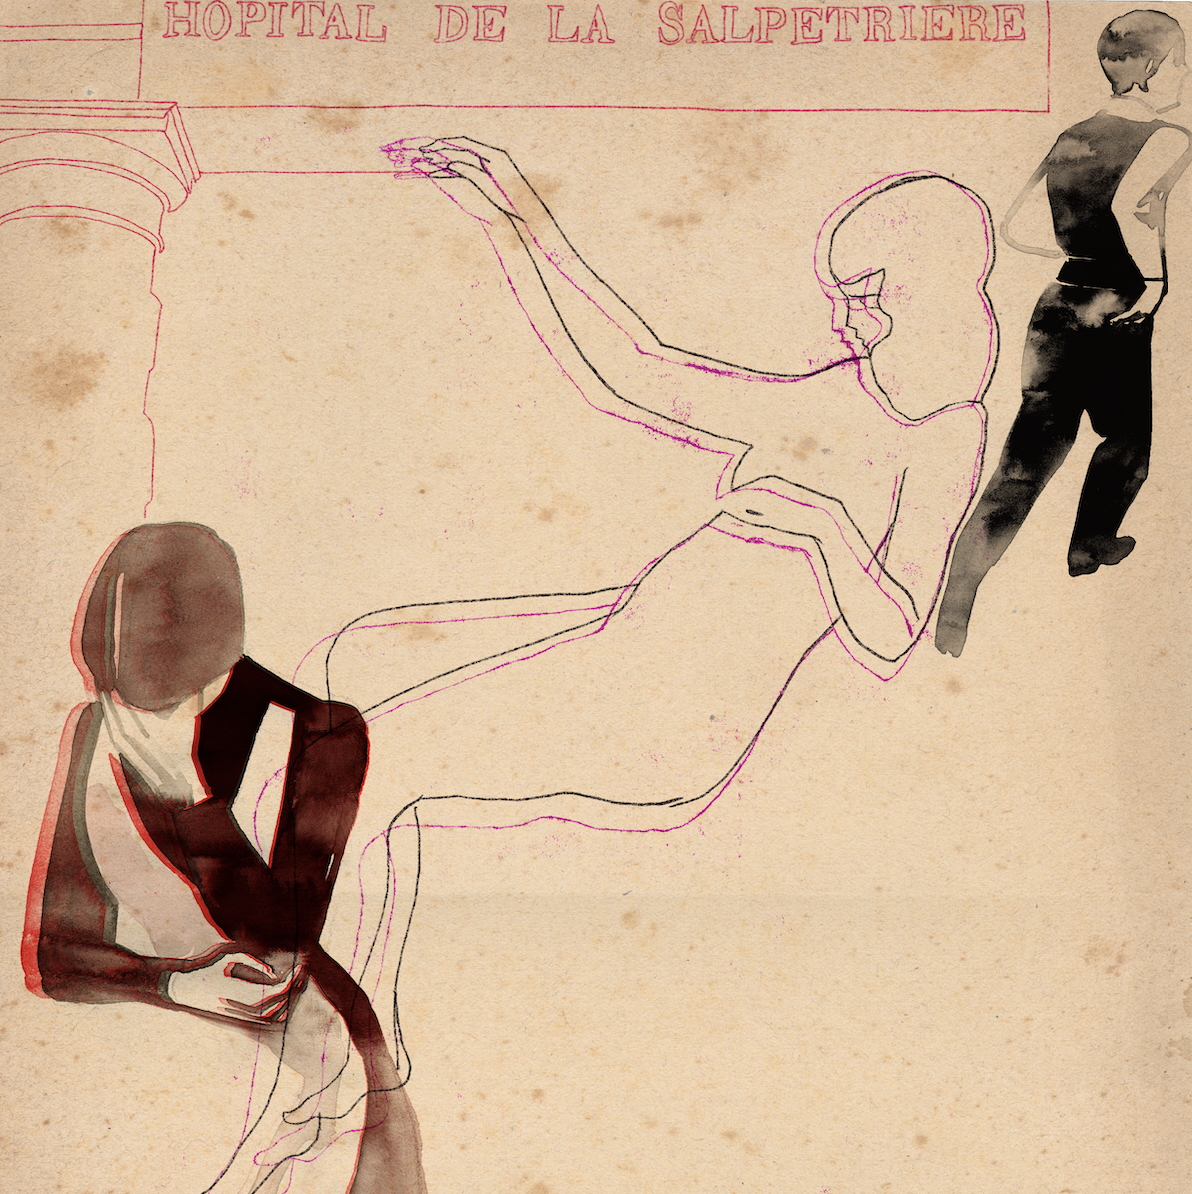 HOPITAL DE LA SALPETRIERE